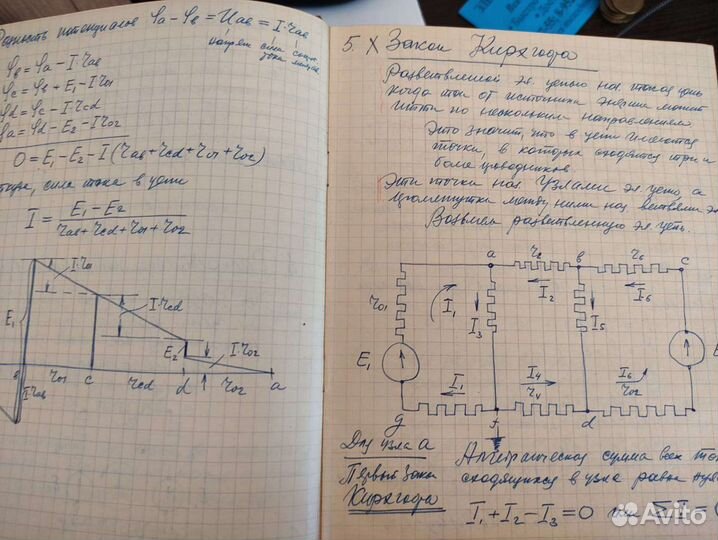 Разность потенциалов φa − φb = Uab = I·rab
напряж сила сопр
тока
φb = φa − I·rab
φc = φb + E1 − I·r01
φd = φc − I·rcd
φa = φd − E2 − I·r02
0 = E1 − E2 − I (rab + rcd + r01 + r02)
сила тока в цепи
I = E1 − E2
rab + rcd + r01 + r02
I·r01
I·rcd
E1
E2
I·r02
I·rab
в r01 c rcd d r02 a
5. X Закон Кирхгофа
Разветвленной эл. цепью наз. такая цепь
когда ток от источника энергии может
итти по нескольким направлениям
Это значит, что в цепи имеются
точки, в которых сходятся три и
более проводников
Эти точки наз Узлами эл. цепи, а
промежутки между ними наз ветвями эл
Возьмем разветвленную эл. цепь.
a r2 в r6 c
r01 I1 I3 I2 I5 I6
E1 E
I1 I4 I6
r4 r02
g f d
Для узла а
Первый Закон
Кирхгофа
Алгебраическая сумма всех
сходящихся в узле равна
I1 + I2 − I3 = 0 или ΣI = 0
Avito